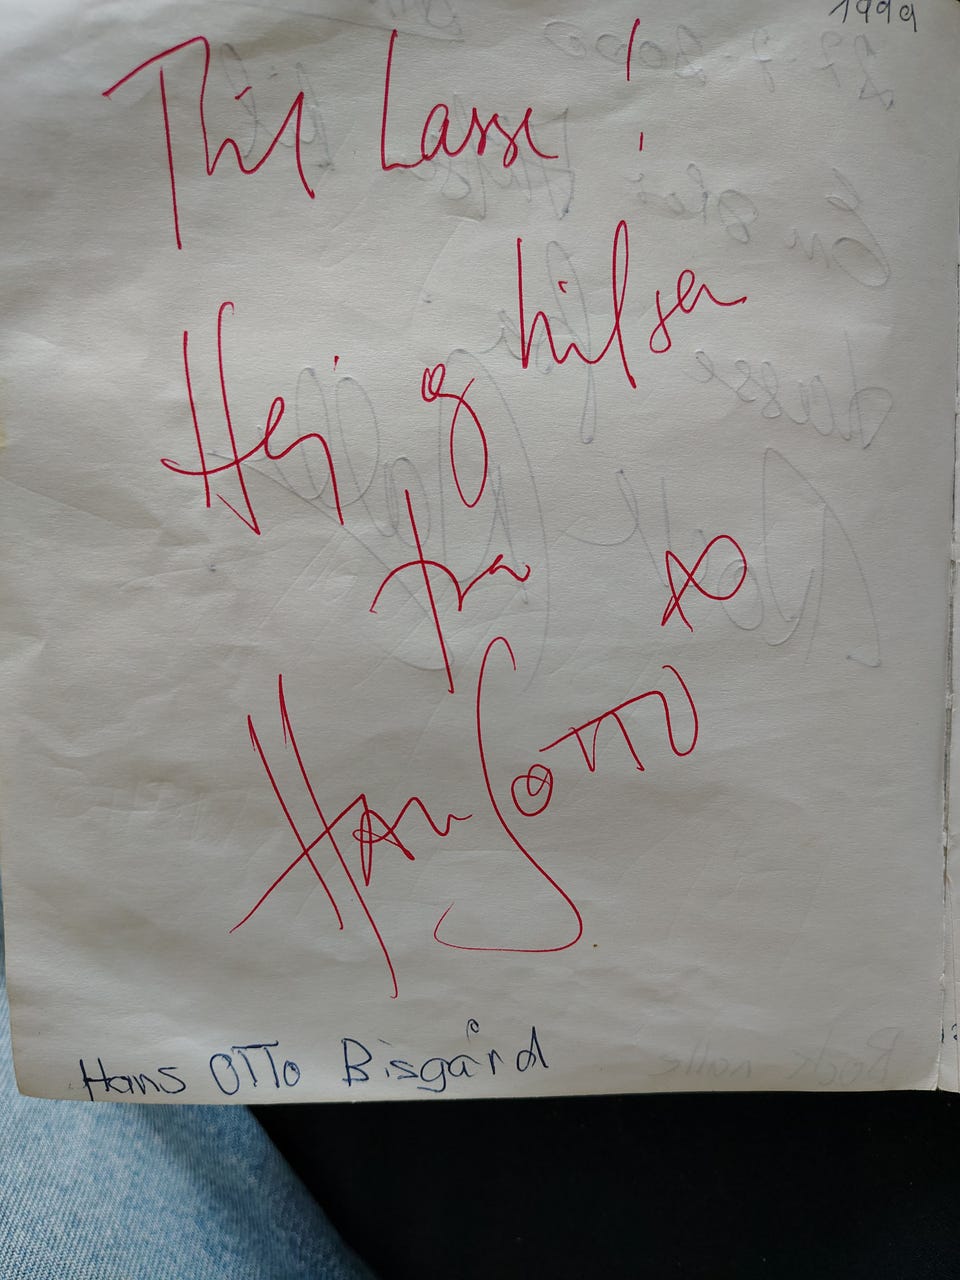 1999
Til Lasse!
Hej og hilsen
fra
Hans OTTO
Hans OTTO Bisgård